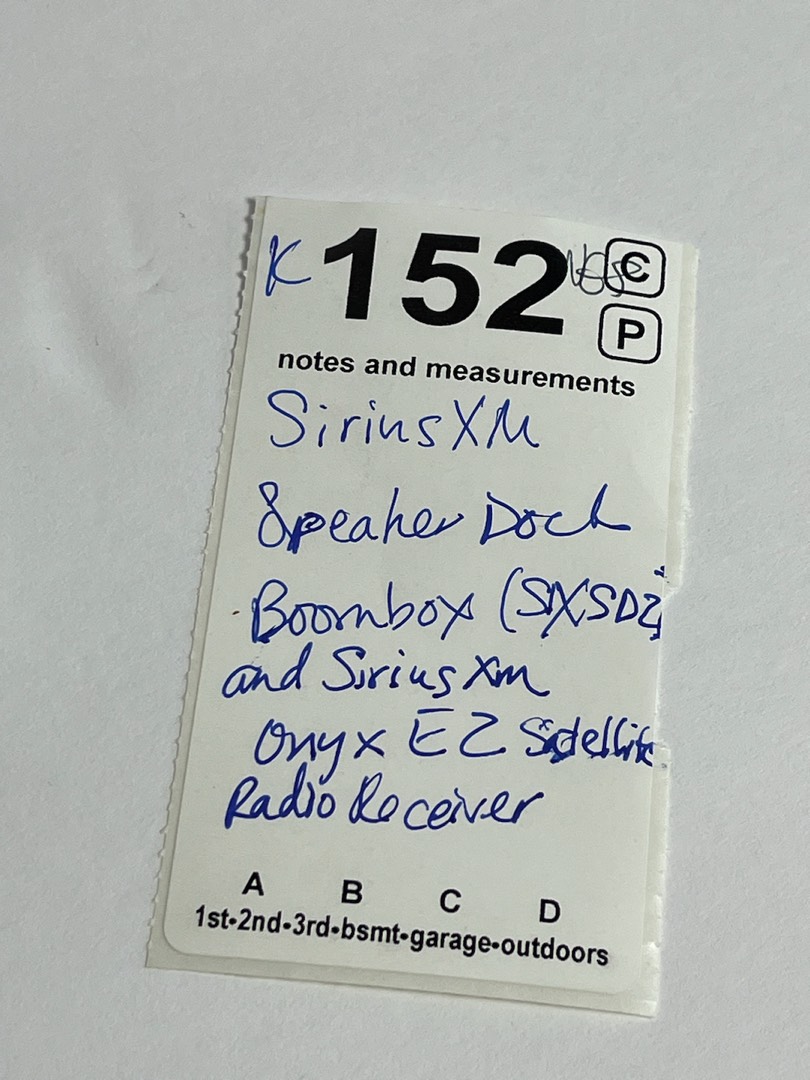 K 152 C
P
notes and measurements
SiriusXM
Speaker Dock
Boombox (SXSD2)
and Sirius Xm
Onyx EZ Satellite
Radio Receiver
A B C D
1st-2nd-3rd-bsmt-garage-outdoors